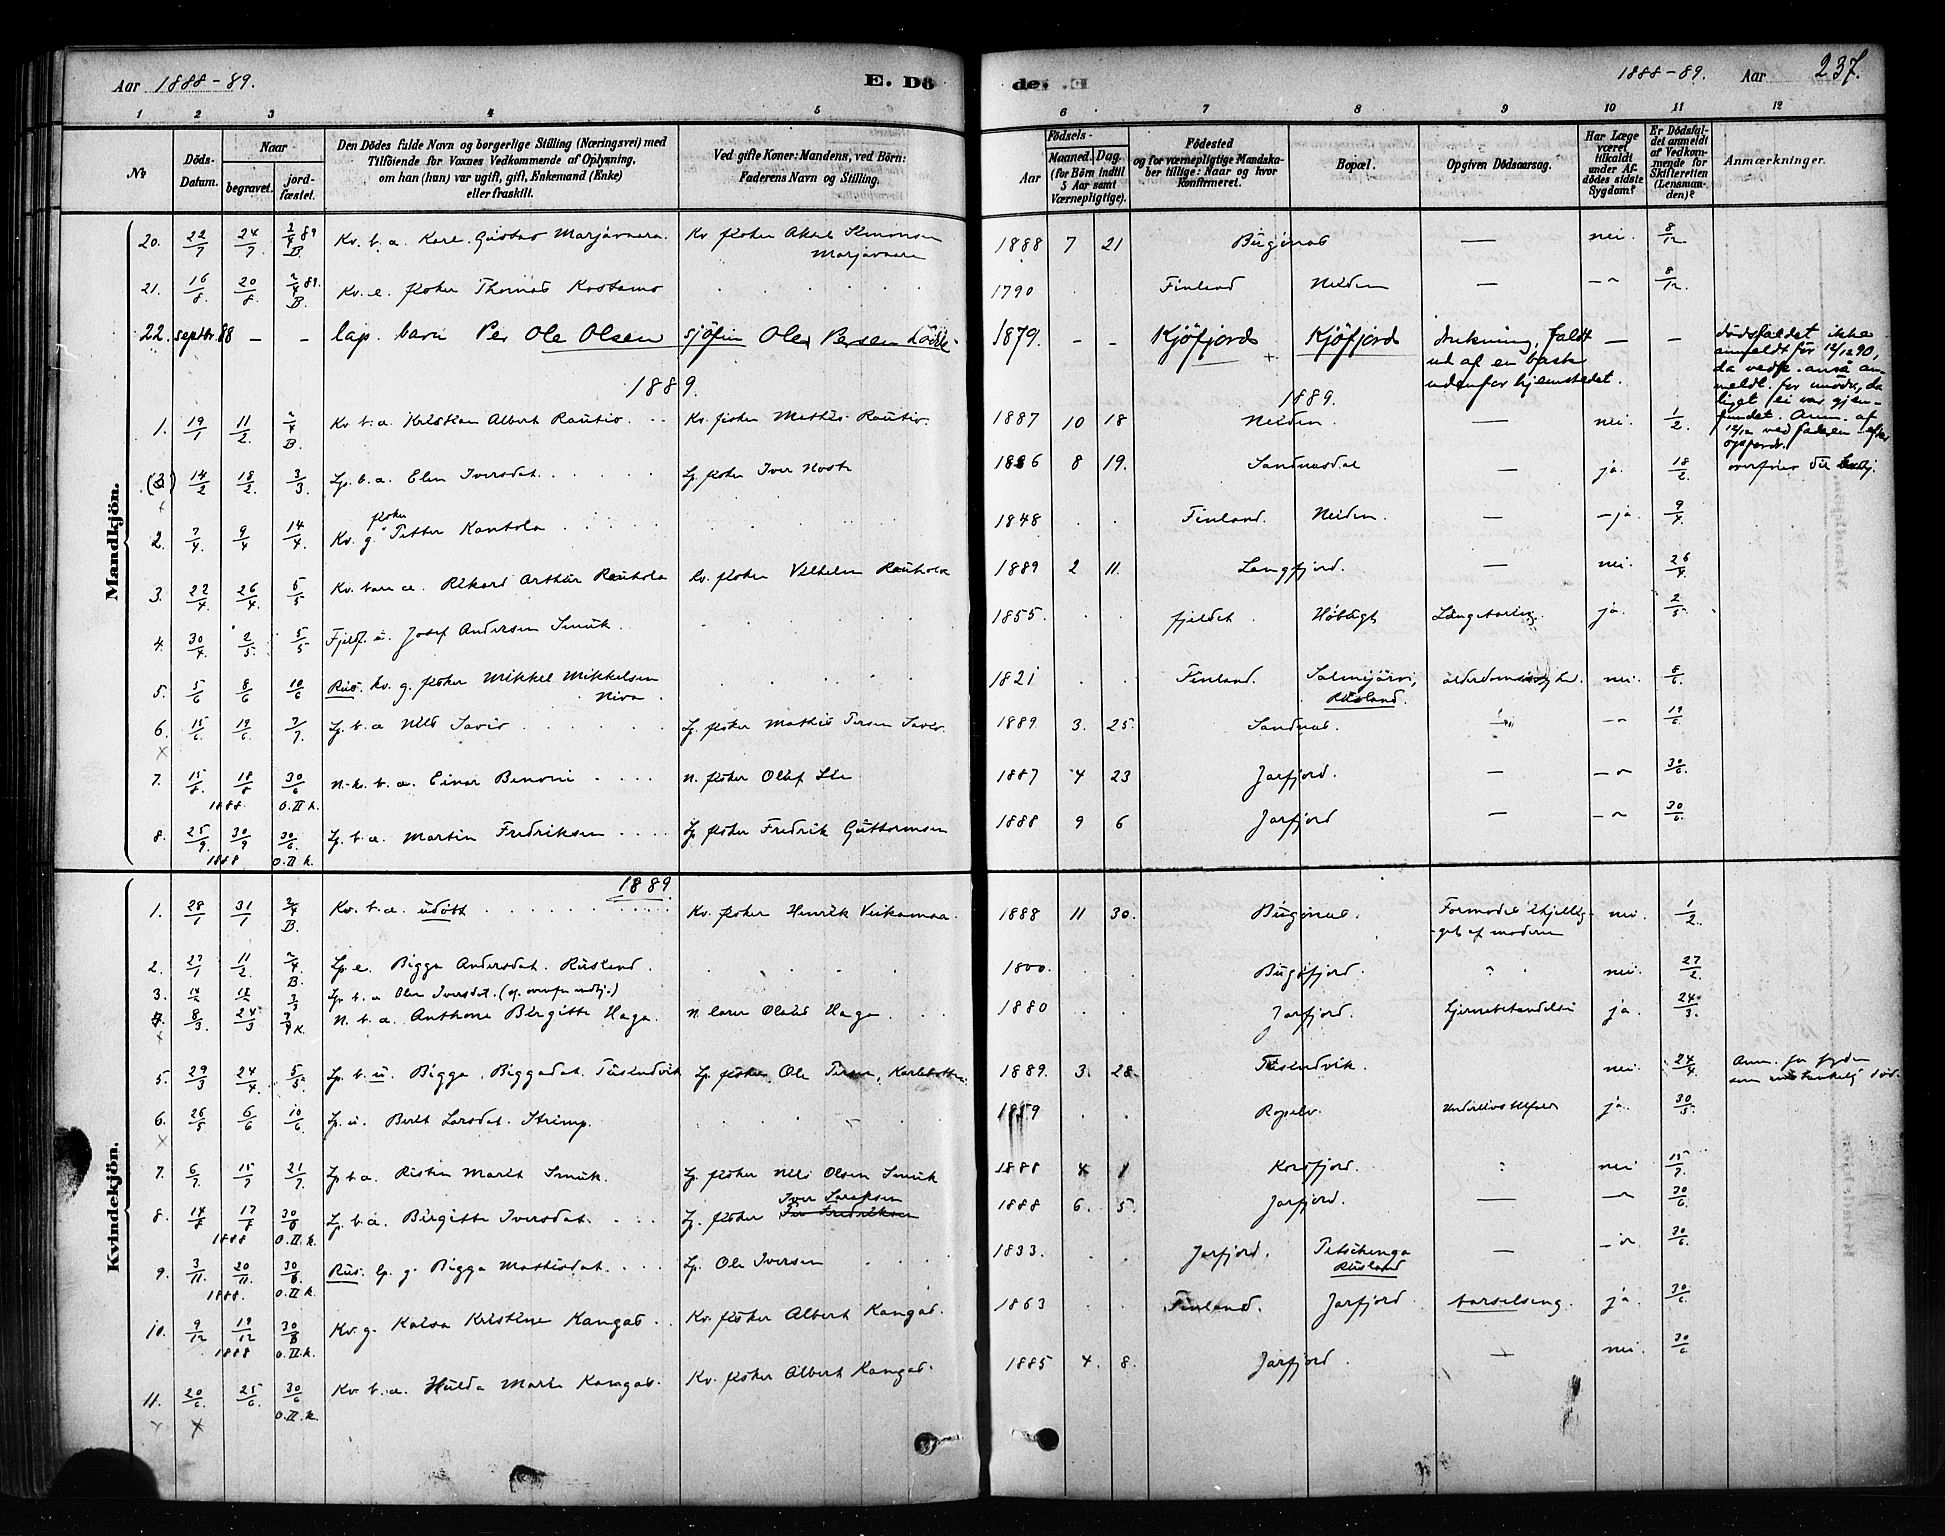 Aar 1888-89. E. Dö
de. 1888-89. Aar 237.
1 2 3 4 5 6 7 8 9 10 11 12
No
Döds-Datum.
Naar
begravet.
jord-fæstet.
Den Dödes fulde Navn og borgerlige Stilling (Næringsvei) med
Tilföiende for Voxnes Vedkommende af Oplysning,
om han (hun) var ugift, gift, Enkemand (Enke)
eller fraskilt.
Ved gifte Koner: Mandens, ved Börn:
Faderens Navn og Stilling.
Födsels-
Aar
Maaned. Dag.
(for Börn indtil
5 Aar samt
Værnepligtige).
Födested
og for værnepligtige Mandska-
ber tillige: Naar og hvor
konfirmeret.
Bopæl.
Opgiven Dödsaarsag.
Har Læge
været
tilkaldt
under Af-
dödes sidste
Sygdom?
Er Dödsfal-
det anmeldt
af Vedkom-
mende for
Skifteretten
(Lensman-
den)?
Anmærkninger.
Mandkjön.
20. 22/7 24/7 2/4 89 B. Kv. b. a. Karl Gustav Marjavaara Kv fisker Aksel Marjavaara 1888 7 21 Bugønes — nei. 8/12
21. 16/8. 20/8. 2/4 89. B. Kv. e. fisker Thomas Kostamo 1790 Finland Neiden — -"- 8/12
22. septbr. 88 - - lap. barn Per Ole Olsen sjöfin Ole Persen 1879. - - Kjöfjord Kjöfjord drukning, faldt — — dødsfaldet ikke
ud af en baad anmeldt før 12/12 90,
udenfor hjemstedet. da vedk. anså an-
1889. 1889.
meldt. for unødv., da
liget ei var gjen-
fundet. Anm. af
12/12 ved faderen efter
opfordr.
1. 19/1 11/2. 2/4 B. Kv b. a. Kristian Albert Rautio Kv. fisker Mathis Rautio. 1887 10 18 Neiden. — nei. 1/2.
(3) 14/2 18/2. 3/3. Lp. b. a. Elen Iversdat. Lp fisker Iver 1886 8 19. Sandnesdal — ja. 18/2. overføres til kvdkj.
2. 7/4. 9/4 14/4. Kv. g. fisker Petter Kantola 1848 Finland. Neiden. — -ja. 9/4.
3. 22/4. 26/4. 5/5 Kv. barn a. Rikard Arthur Rauhola Kv. fisker Vilhelm Rauhola 1889 2 11. Langfjord. — nei. 26/4.
4. 30/4. 2/5. 5/5 Fjeldf. u. Josef Andersen Smuk. 1855. fjeldet. Høbugt Lungetæring. ja. 2/5.
5. 5/6 8/6 10/6 Rus. kv. g. fisker Mikkel Mikkelsen Niva. 1821 Finland. Salmijärvi, Rusland. alderdomssvaghed. nei. 6/6.
6. 15/6. 19/6. 7/7 Lp. b. a Nils Savio Lp. fisker Mathis Persen Savio. 1889. 3. 25. Sandnes. -"- 19/6.
7. 15/8. 18/8 30/6 N. kv. b. a. Einar Benoni N. fisker Olaf 1887 4 23 Jarfjord. — -"- 30/6.
1888 O.II K.
8. 25/9. 30/9 30/6. Lp. b. a. Martin Fredriksen Lp. fisker Fredrik Guttormsen 1888 9 6 Jarfjord — -"- 30/6.
1888 O.II K.
Kvindekjön.
1889
1. 28/1 31/1 2/4 B. Kv. b. a. udøbt Kv. fisker Henrik 1888 11 30. Bugønes. Formodet ihjellig-
get af moderen nei. 1/2.
2. 27/1 11/2. 2/4. B. Lp. e. Bigga Andersdat. Rusland. 1800. Bugøfjord. nei. 27/2.
3. 14/2 18/2 3/3 Lp. b. a Elen Iversdat.
4. 8/3. 24/3 7/4 K. N. b. a. Anthone Birgitte Haga. N. lærer Olaus Haga 1880 Jarfjord. Hjernebetændelse ja. 24/3.
5. 29/3 24/4. 5/5. Lp. b. u. Bigga Biggadat. Tusendvik Lp. fisker Ole Persen, Karlbotten 1889. 3. 28. Tusendvik. nei. 24/4 Anm. for
6. 26/5 6/6 10/6. Lp. u. Berit Larsdat. Strimp. 1859 Ropelv. Underlivstilfælde ja. 30/5.
7. 6/7. 15/7 21/7. Lp b. a. Kristin Marit Smuk. Lp. fisker Nils Olsen Smuk 1888 4 1 Korsfjord. nei 15/7.
8. 14/8 17/8 30/6 Lp. b. a. Birgitta Iversdat. Lp. fisker Iver Saraksen 1888 6. 5. Jarfjord. — -"- 30/6.
1888 O.II.K.
9. 3/11. 20/11. 30/6 Rus. lp. g. Bigga Mathisdat. Lp. Ole Iversen 1833. Jarfjord. Petschenga Rusland — -"- 30/6
1888. O.II K.
10. 9/12 19/12 30/6 Kv. g. Kaisa Kristine Kangas. Kv. fisker Albert Kangas. 1863 Finland. Jarfjord. barselseng. ja. 30/6
1888 O.II.K.
11. 20/6. 25/6. 30/6 O.II.K. Kv. b. a. Hulda Marie Kangas. Kv. fisker Albert Kangas. 1885 4. 8. Jarfjord. — nei. 30/6